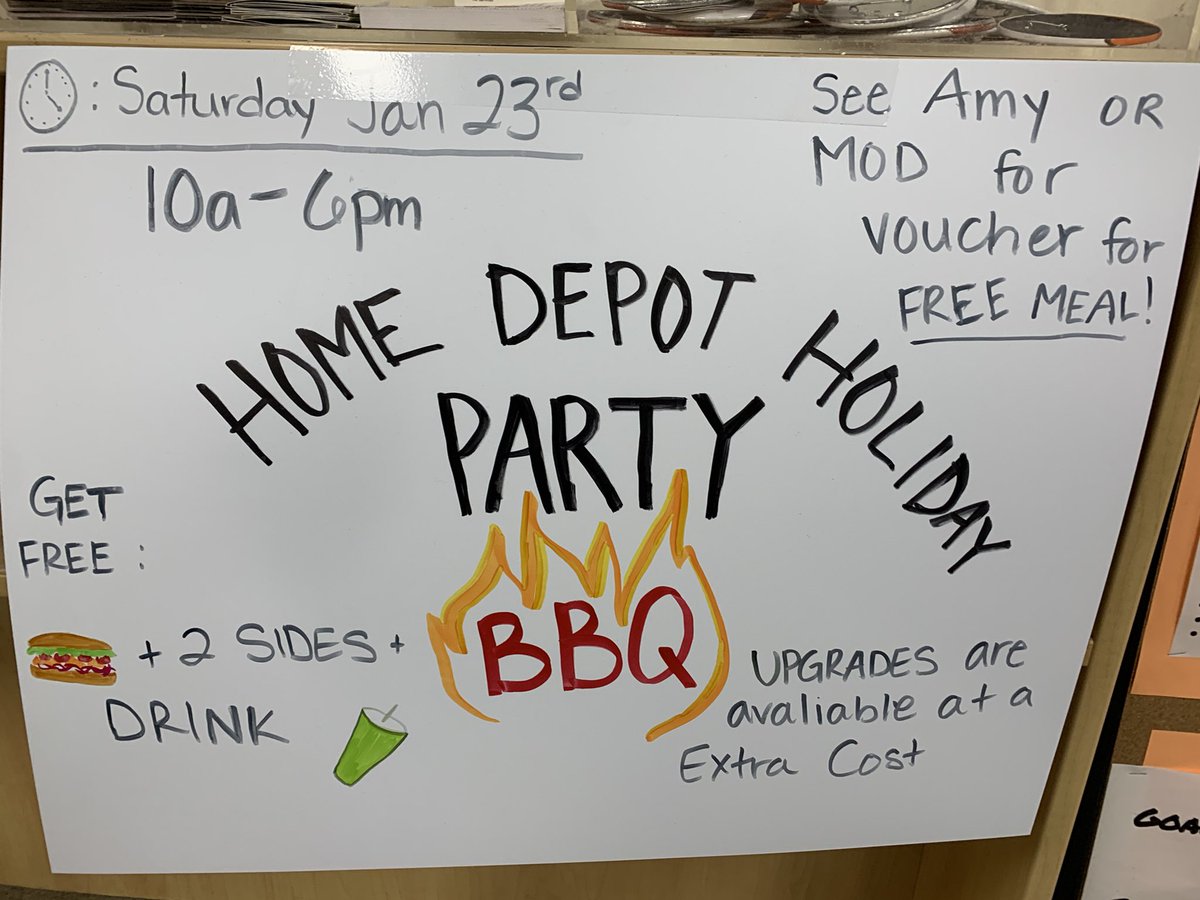 : Saturday Jan 23rd
10a - 6pm
See Amy OR
MOD for
voucher for
FREE MEAL!
HOME DEPOT HOLIDAY
PARTY
BBQ
GET
FREE :
+ 2 SIDES +
DRINK
UPGRADES are
avaliable at a
Extra Cost